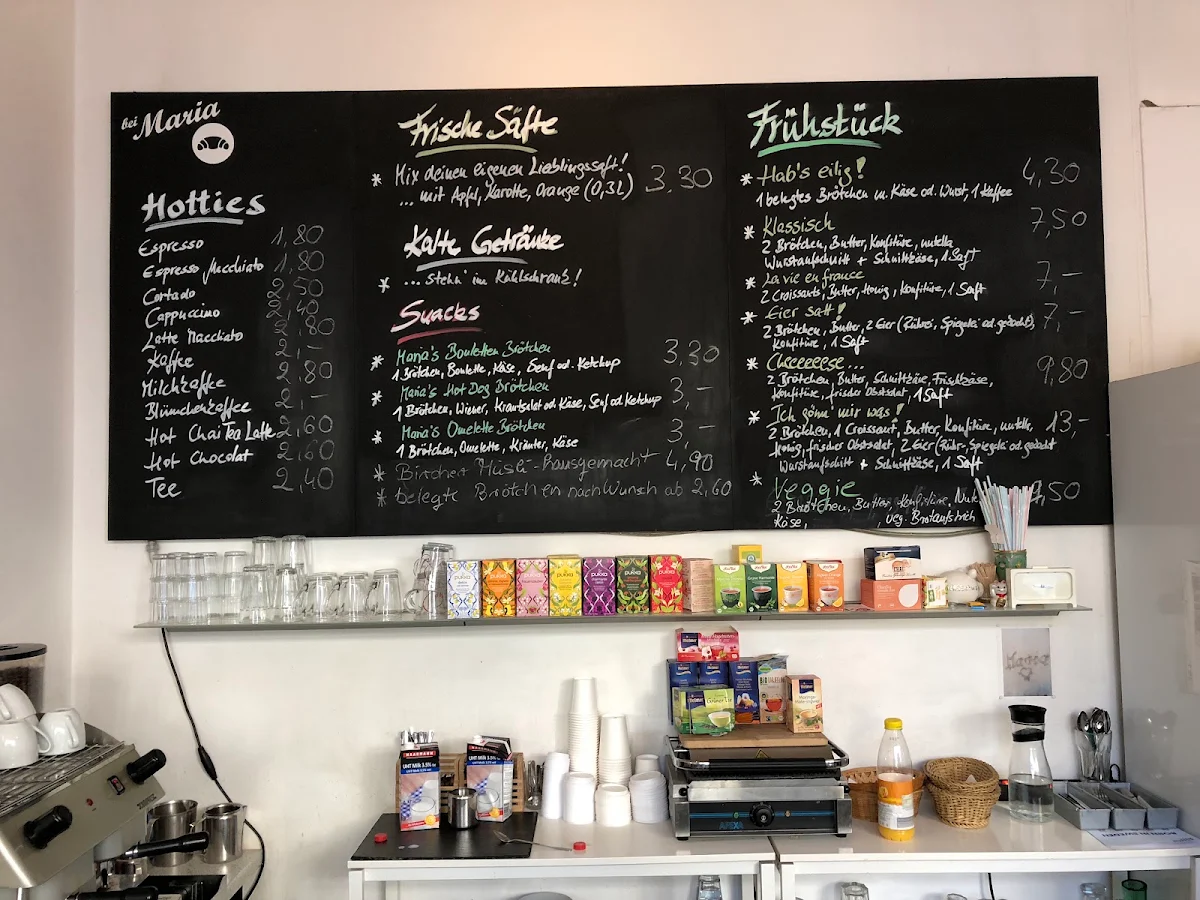 bei Maria
Hotties
Espresso 1,80
Espresso Macchiato 1,80
Cortado 2,50
Cappuccino 2,40
Latte Macchiato 2,80
Kaffee 2,–
Milchkaffee 2,80
Blümchenkaffee 2,–
Hot Chai Tea Latte 2,60
Hot Chocolat 2,60
Tee 2,40
Frische Säfte
* Mix deinen eigenen Lieblingssaft! 3,30
... mit Apfel, Karotte, Orange (0,3L)
Kalte Getränke
* ... Stehn' im Kühlschrank!
Snacks
* Maria's Bouletten Brötchen 3,30
1 Brötchen, Boulette, Käse, Senf od. Ketchup
* Maria's Hot Dog Brötchen 3,–
1 Brötchen, Wiener, Krautsalat od. Käse, Senf od. Ketchup
* Maria's Omelette Brötchen 3,–
1 Brötchen, Omelette, Kräuter, Käse
* Bircher Müsli - hausgemacht 4,90
* belegte Brötchen nach Wunsch ab 2,60
Frühstück
* Hab's eilig! 4,30
1 belegtes Brötchen m. Käse od. Wurst, 1 Kaffee
* Klassisch 7,50
2 Brötchen, Butter, Konfitüre, nutella
Wurstaufschnitt + Schnittkäse, 1 Saft
* La vie en france 7,–
2 Croissants, Butter, Honig, Konfitüre, 1 Saft
* Eier satt! 7,–
2 Brötchen, Butter, 2 Eier (Rührei, Spiegelei od. gekocht),
Konfitüre, 1 Saft
* Cheeeeese... 9,80
2 Brötchen, Butter, Schnittkäse, Frischkäse,
Konfitüre, frischer Obstsalat, 1 Saft
* Ich gönn' mir was! 13,–
2 Brötchen, 1 Croissant, Butter, Konfitüre, nutella,
Honig, frischer Obstsalat, 2 Eier (Rühr-, Spiegelei od. gekocht
Wurstaufschnitt + Schnittkäse, 1 Saft
* Veggie ,50
2 Brötchen, Butter, Konfitüre, Nute
Käse, , veg. Brotaufstrich
pukka pukka pukka pukka pukka pukka pukka
Maria
UHT Milk 3.5%
UHT Milk 3.5%
APEXA